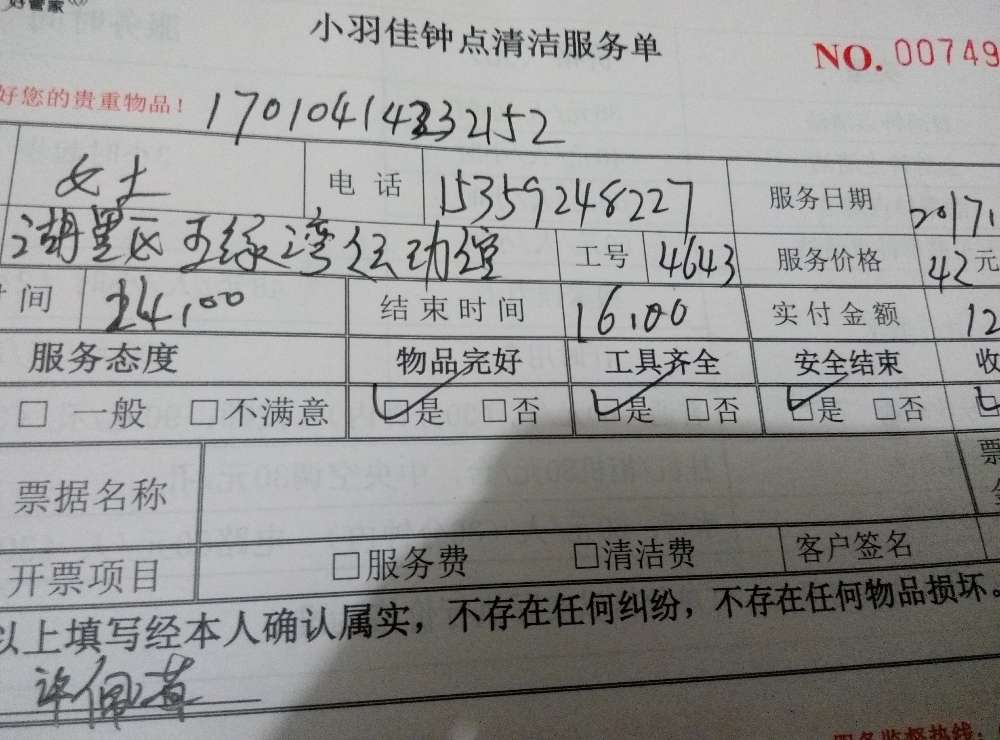 好管家
小羽佳钟点清洁服务单
NO. 00749
好您的贵重物品！
女士 电话 15359248227 服务日期 2017.
湖里区五缘湾运动馆 工号 4643 服务价格 42元
时间 14:00 结束时间 16:00 实付金额 12
服务态度 物品完好 工具齐全 安全结束 收
□ 一般 □不满意 ☑是 □否 ☑是 □否 ☑是 □否
票据名称 票
开票项目 □服务费 □清洁费 客户签名
以上填写经本人确认属实，不存在任何纠纷，不存在任何物品损坏。
服务监督热线：